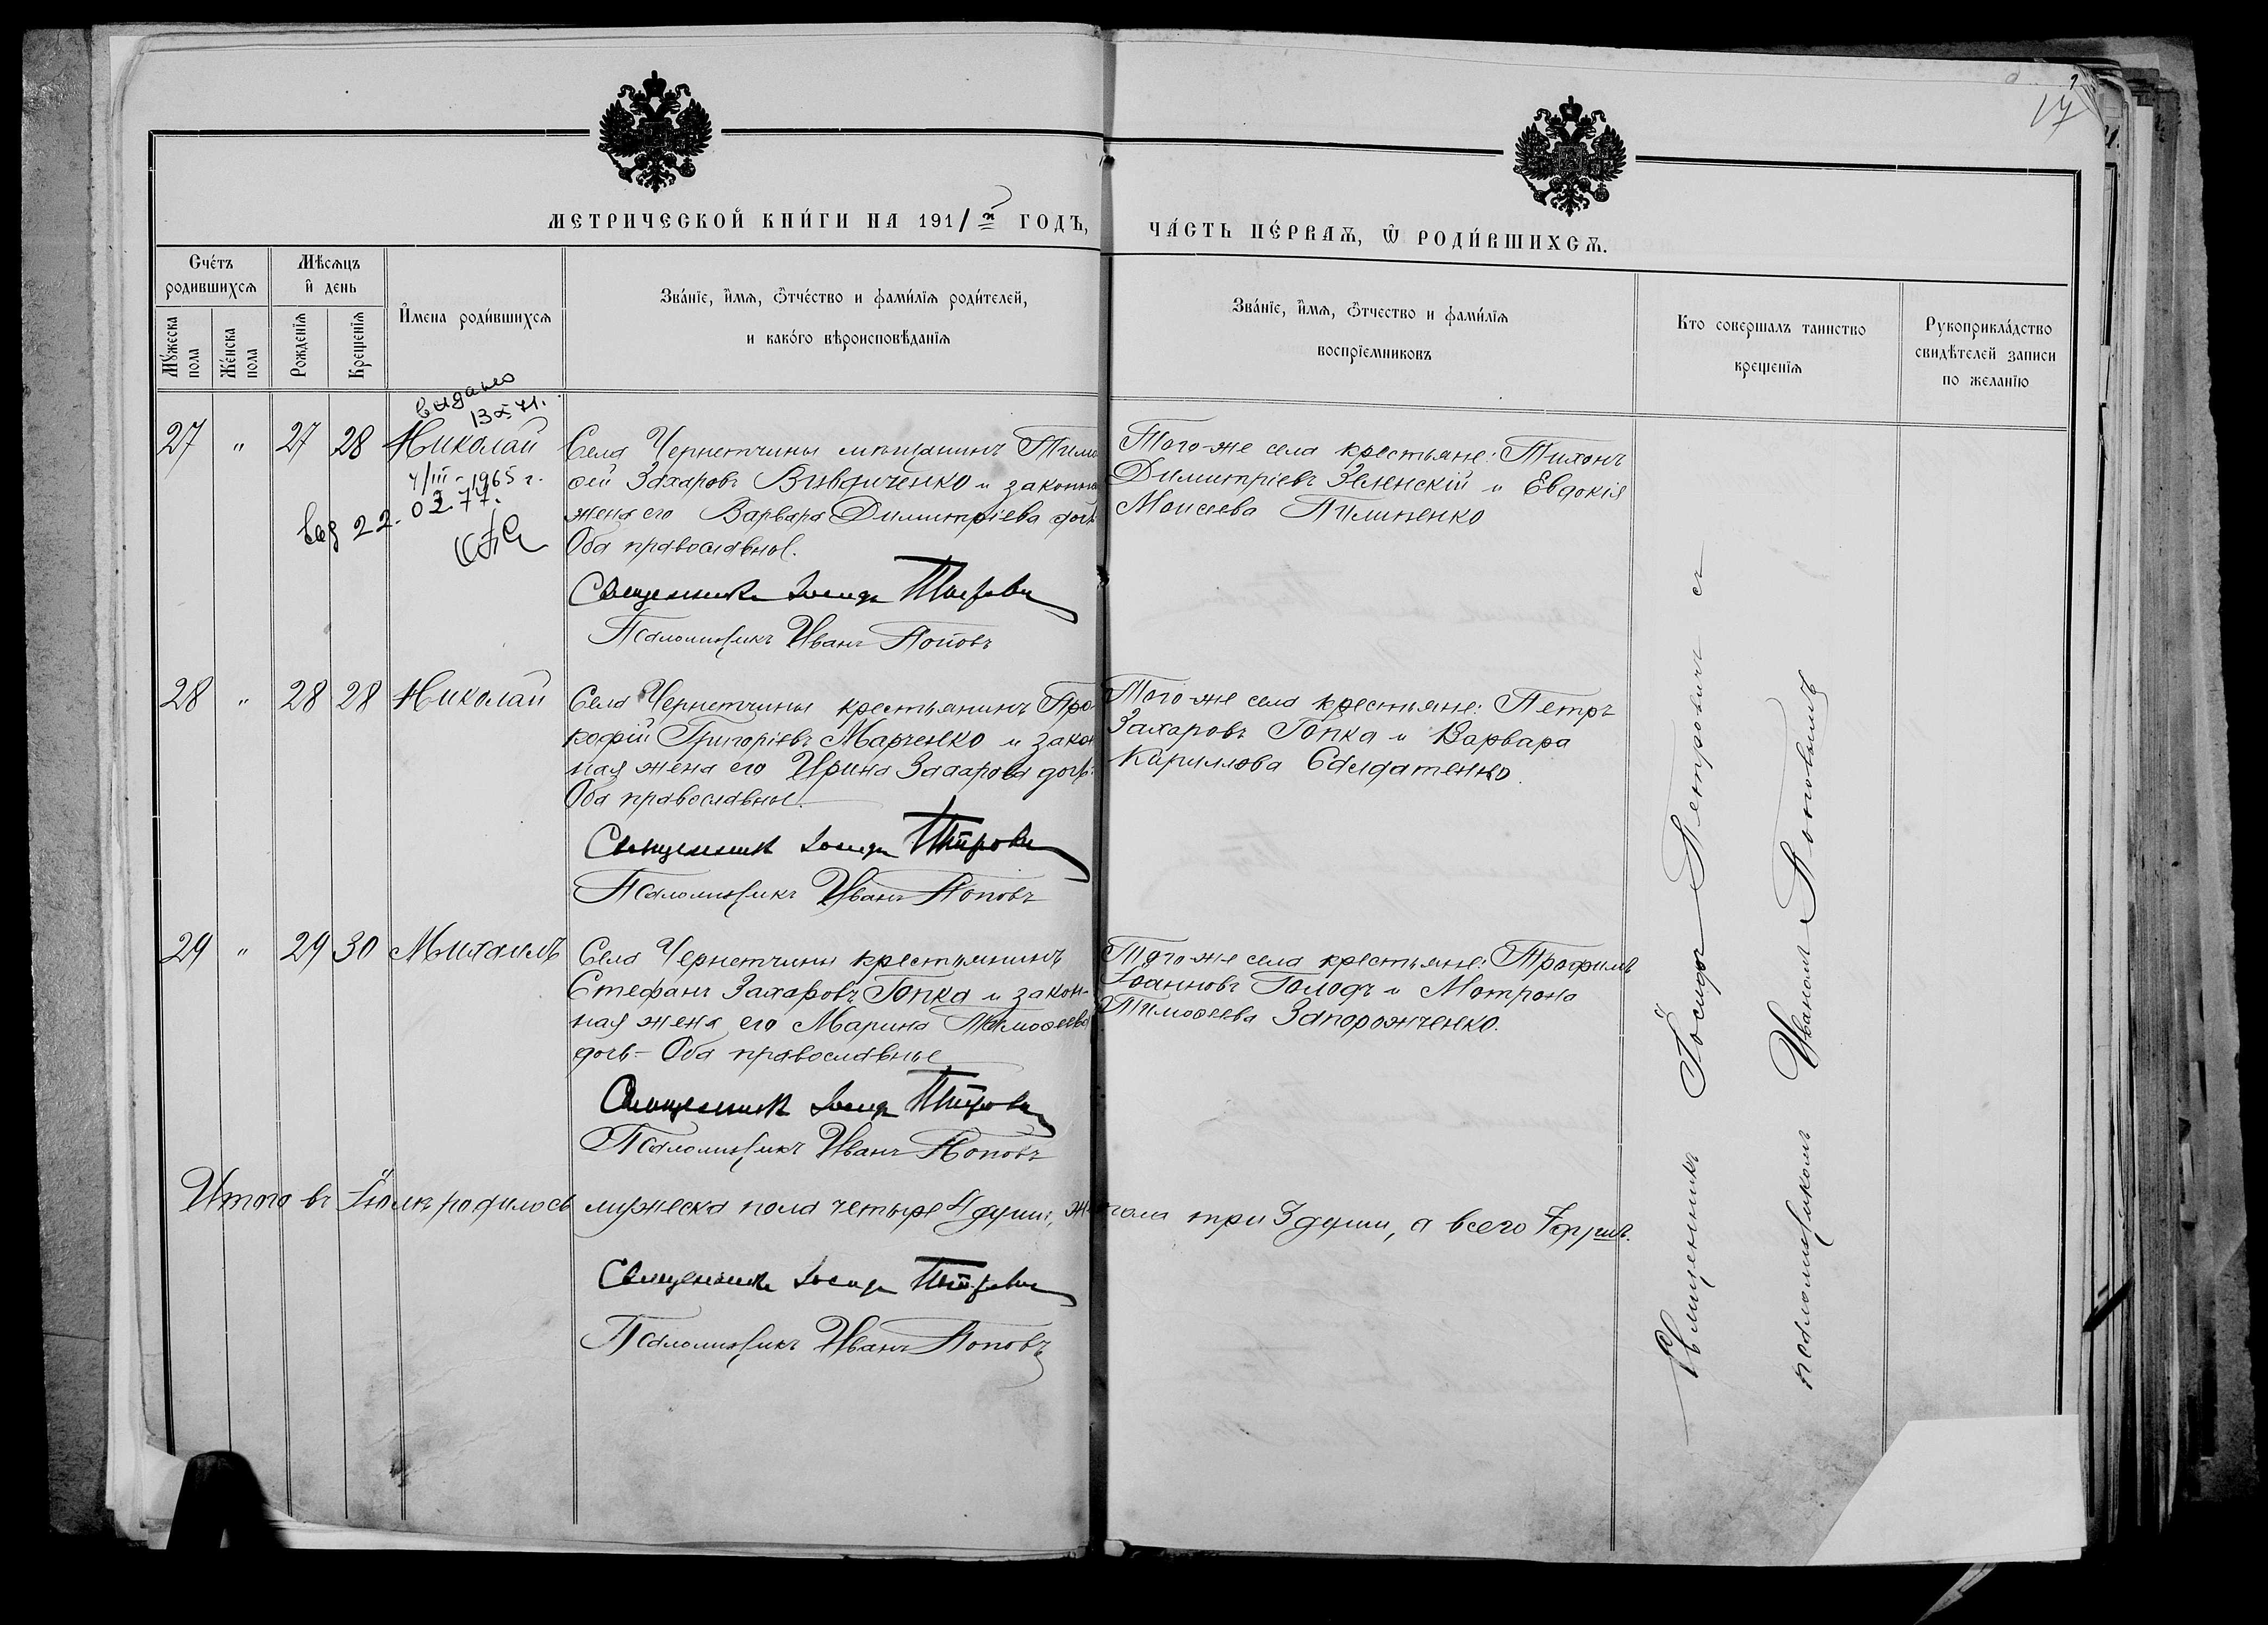 17
МЕТРИЧЕСКОЙ КНИ́ГИ НА 1911й ГОДЪ,
ЧА́СТЬ ПЕ́РВАѦ, Ѿ РОДИ́ВШИХСѦ.
Сче́тъ родившихсѧ
Мѣсѧцъ и день
Мꙋжеска пола
Же́нска пола
Рожденїѧ
Крещенїѧ
Имена роди́вшихсѧ
Зва́нїе, и́мѧ, ѻтче́ство и фами́лїѧ роди́телей,
и како́го вѣроисповѣданїѧ
Зва́нїе, и́мѧ, ѻтчество и фами́лїѧ
воспрїемниковъ
Кто совершалъ таинство
крещенїѧ
Рукоприкла́дство
свидѣтелей записи
по желанїю
выдано
13 X 71.
27 " 27 28 Николай
4/III-1965 г.
22.02.77.
Села Чернетчины мѣщанинъ Тимо
ѳей Захаровъ и законная
жена его Варвара Димитріева дочь
Оба православные.
Священникъ Іосифъ Петровъ
Псаломщикъ Иванъ Поповъ
Того-же села крестьяне: Тихонъ
Димитріевъ Зеленскій и Евдокія
Моисеева Пилипенко
28 " 28 28 Николай
Села Чернетчины крестьянинъ Про
кофій Григоріевъ Марченко и закон
ная жена его Ирина Захарова дочь.
Оба православные.
Священникъ Іосифъ Петровъ
Псаломщикъ Иванъ Поповъ
Того-же села крестьяне: Петръ
Захаровъ Гопка и Варвара
Кириллова Салдатенко.
29 " 29 30 Михаилъ
Села Чернетчины крестьянинъ
Стефанъ Захаровъ Гопка и закон-
ная жена его Марина Тимоѳеева
дочь - Оба православные
Священникъ Іосифъ Петровъ
Псаломщикъ Иванъ Поповъ
Того-же села крестьяне: Трофимъ
Іоанновъ Голодъ и Матрона
Тимоѳеева Запорожченко.
Итого въ Іюлѣ родилось мужеска пола четыре 4 души, ж пола три 3 души, а всего 7 душъ.
Священникъ Іосифъ Петровъ
Псаломщикъ Иванъ Поповъ
Священникъ Іосифъ Петровичъ съ
псаломщикомъ Иваномъ Поповымъ